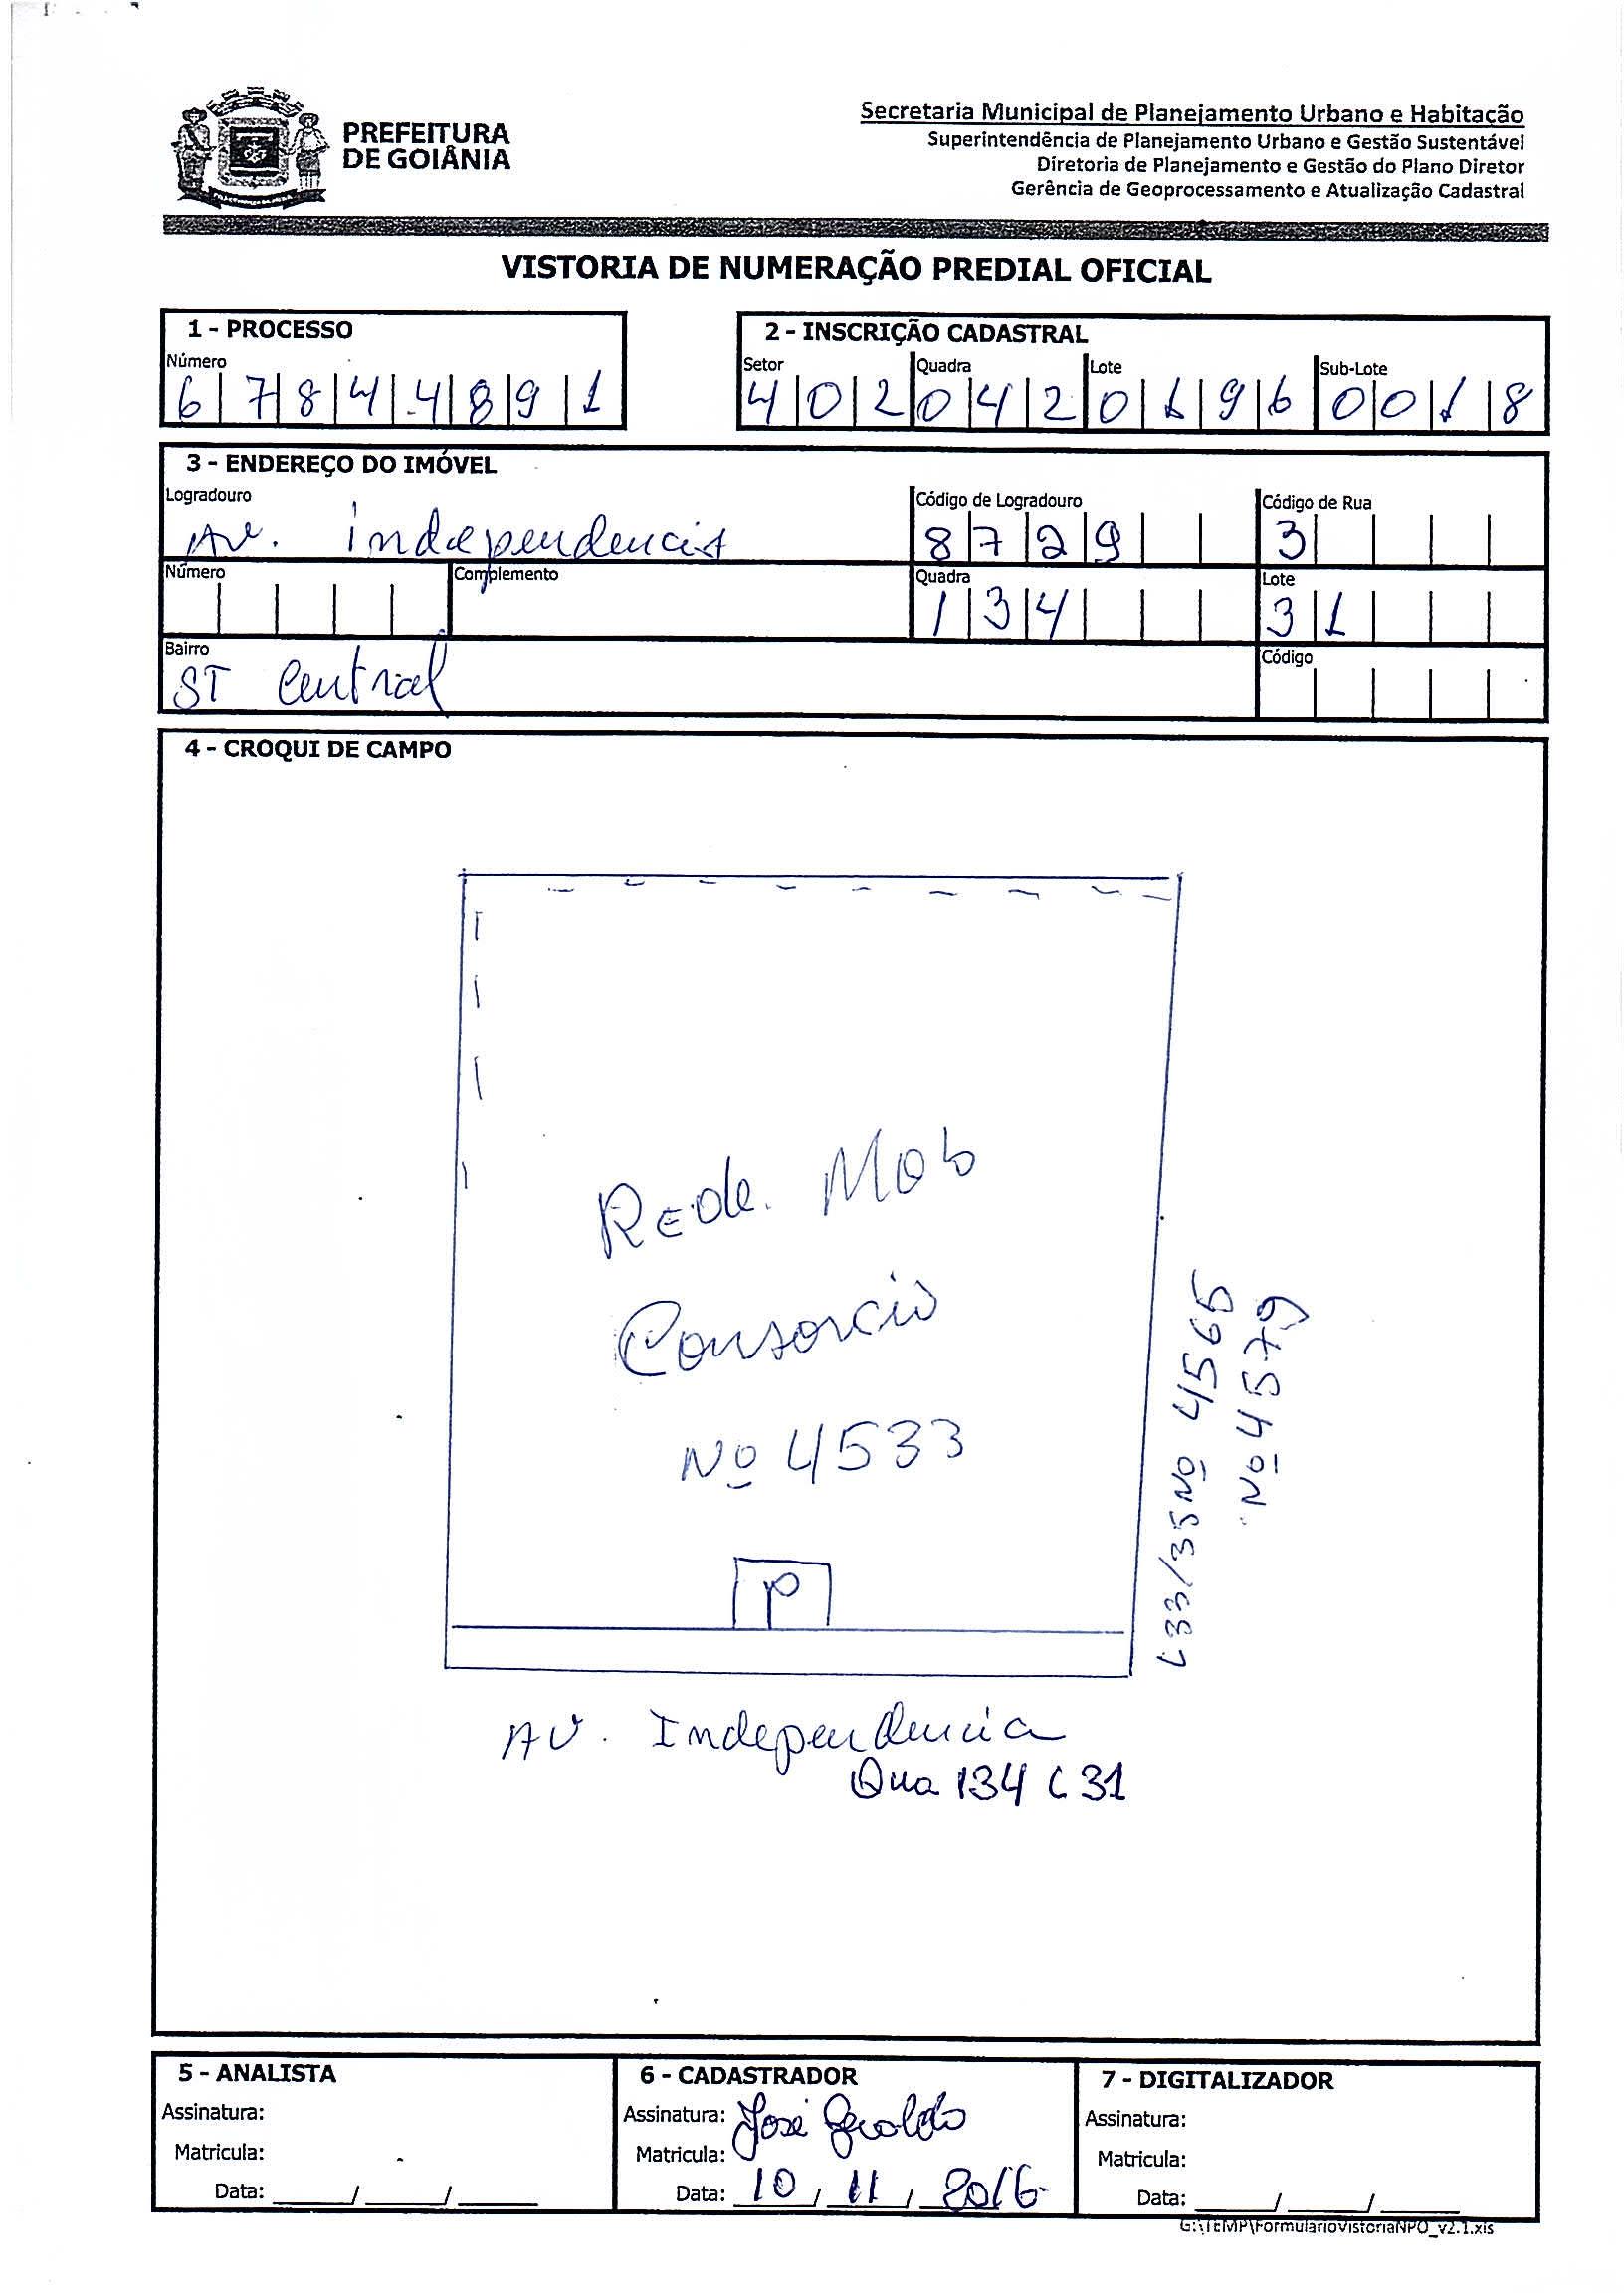 PREFEITURA
DE GOIÂNIA
Secretaria Municipal de Planejamento Urbano e Habitação
Superintendência de Planejamento Urbano e Gestão Sustentável
Diretoria de Planejamento e Gestão do Plano Diretor
Gerência de Geoprocessamento e Atualização Cadastral
VISTORIA DE NUMERAÇÃO PREDIAL OFICIAL
1 - PROCESSO
Número
6 7 8 4 4 8 9 1
2 - INSCRIÇÃO CADASTRAL
Setor Quadra Lote Sub-Lote
4 0 2 0 4 2 0 1 9 6 0 0 1 8
3 - ENDEREÇO DO IMÓVEL
Logradouro Código de Logradouro Código de Rua
Av. independencia 8 7 2 9 3
Número Complemento Quadra Lote
1 3 4 3 1
Bairro Código
ST Central
4 - CROQUI DE CAMPO
Rede. Mob
Consorcio
Nº 4533
P
L 33/35 Nº 4565
Nº 4579
AV. Independencia
Qua 134 L 31
5 - ANALISTA
Assinatura:
Matricula:
Data: ____/____/____
6 - CADASTRADOR
Assinatura: José Geraldo
Matricula:
Data: 10 / 11 / 2016
7 - DIGITALIZADOR
Assinatura:
Matricula:
Data: ____/____/____
G:\TEMP\FormularioVistoriaNPO_v2.1.xls